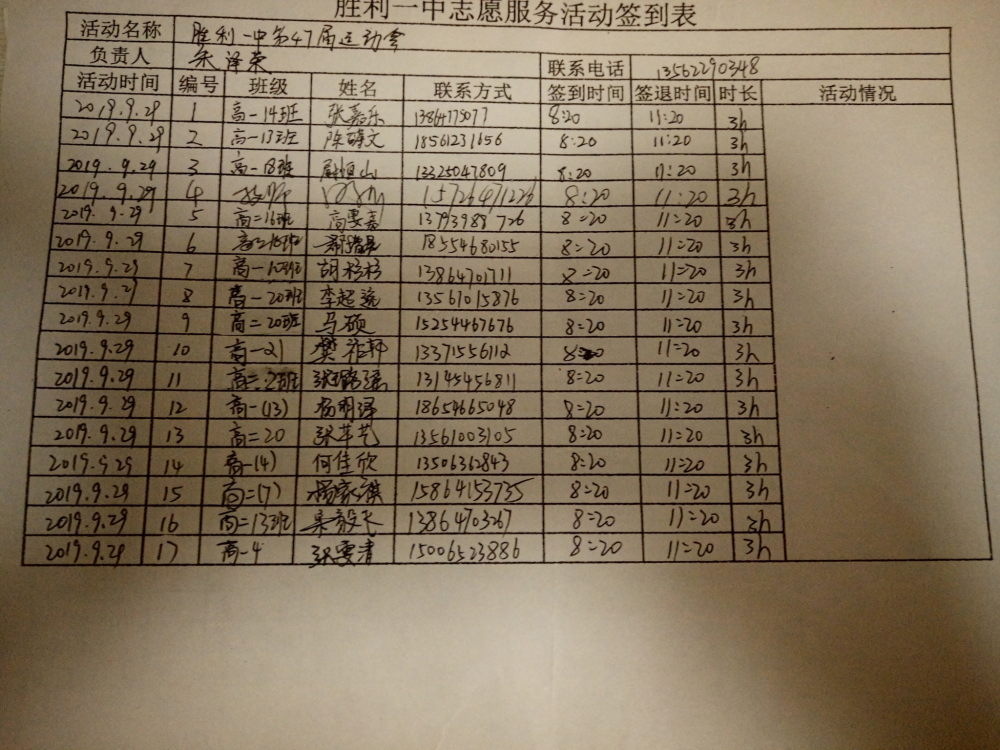 胜利一中志愿服务活动签到表
活动名称 胜利一中第47届运动会
负责人 朱泽荣 联系电话 13562290348
活动时间 编号 班级 姓名 联系方式 签到时间 签退时间 时长 活动情况
2019.9.29 1 高一14班 张嘉乐 8:20 11:20 3h
2019.9.29 2 高一13班 18561231656 8:20 11:20 3h
2019.9.29 3 高一18班 13325047809 8:20 11:20 3h
2019.9.29 4 15726471226 8:20 11:20 3h
2019.9.29 5 高二16班 高雯嘉 13793988726 8:20 11:20 3h
2019.9.29 6 高二16班 18554680155 8:20 11:20 3h
2019.9.29 7 高一10班 胡杉杉 13864701711 8:20 11:20 3h
2019.9.29 8 高一20班 李超逸 13561015876 8:20 11:20 3h
2019.9.29 9 高二20班 马硕 15254467676 8:20 11:20 3h
2019.9.29 10 高一21 樊祚轩 13371556112 8:20 11:20 3h
2019.9.29 11 高二2班 张璐瑶 13145456811 8:20 11:20 3h
2019.9.29 12 高一(13) 杨明泽 18654665048 8:20 11:20 3h
2019.9.29 13 高二20 张芊艺 13561003105 8:20 11:20 3h
2019.9.29 14 高一(4) 何佳欣 13506362843 8:20 11:20 3h
2019.9.29 15 高二(7) 杨家祺 15864153735 8:20 11:20 3h
2019.9.29 16 高二13班 13864703267 8:20 11:20 3h
2019.9.29 17 高一4 张雯清 15006523886 8:20 11:20 3h